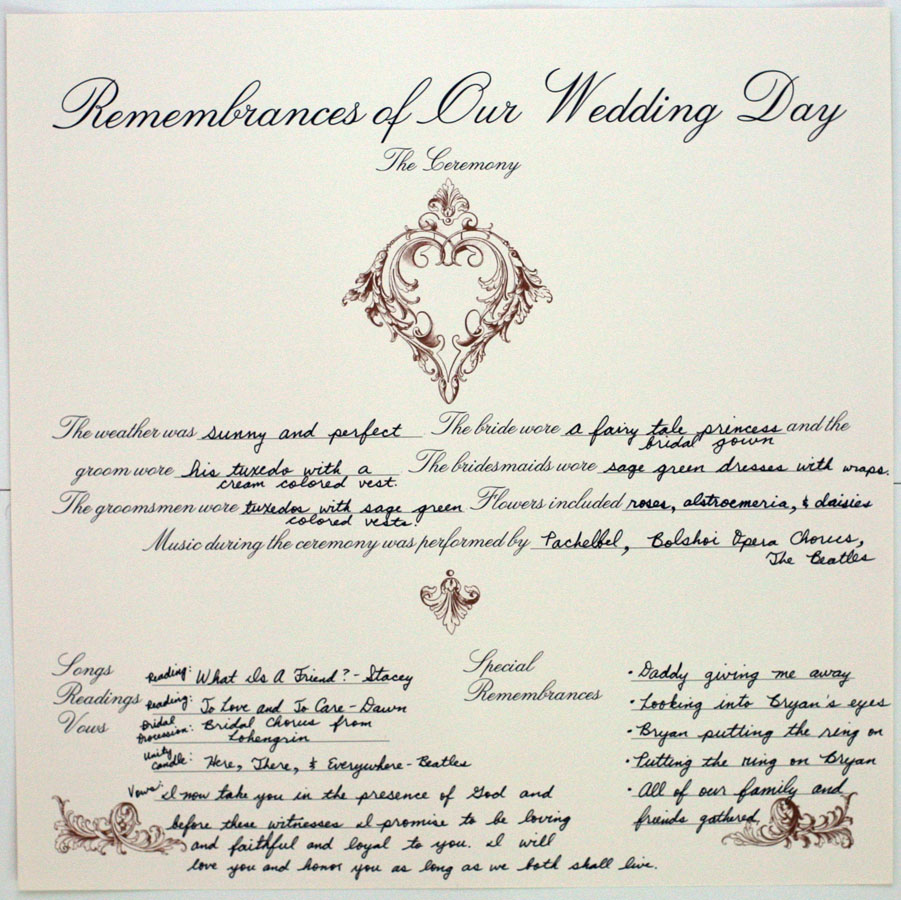 Remembrances of Our Wedding Day
The Ceremony
The weather was sunny and perfect The bride wore a fairy tale princess and the
bridal gown
groom wore his tuxedo with a The bridesmaids wore sage green dresses with wraps.
cream colored vest.
The groomsmen wore tuxedos with sage green Flowers included roses, alstroemeria, & daisies
colored vests.
Music during the ceremony was performed by Pachelbel, Bolshoi Opera Chorus,
The Beatles
Songs
Readings
Vows
Reading: What Is A Friend? - Stacey
Reading: To Love and To Care - Dawn
Bridal Procession: Bridal Chorus from
Lohengrin
Unity Candle: Here, There, & Everywhere - Beatles
Vows: I now take you in the presence of God and
before these witnesses I promise to be loving
and faithful and loyal to you. I will
love you and honor you as long as we both shall live.
Special
Remembrances
• Daddy giving me away
• Looking into Bryan's eyes
• Bryan putting the ring on
• Putting the ring on Bryan
• All of our family and
friends gathered